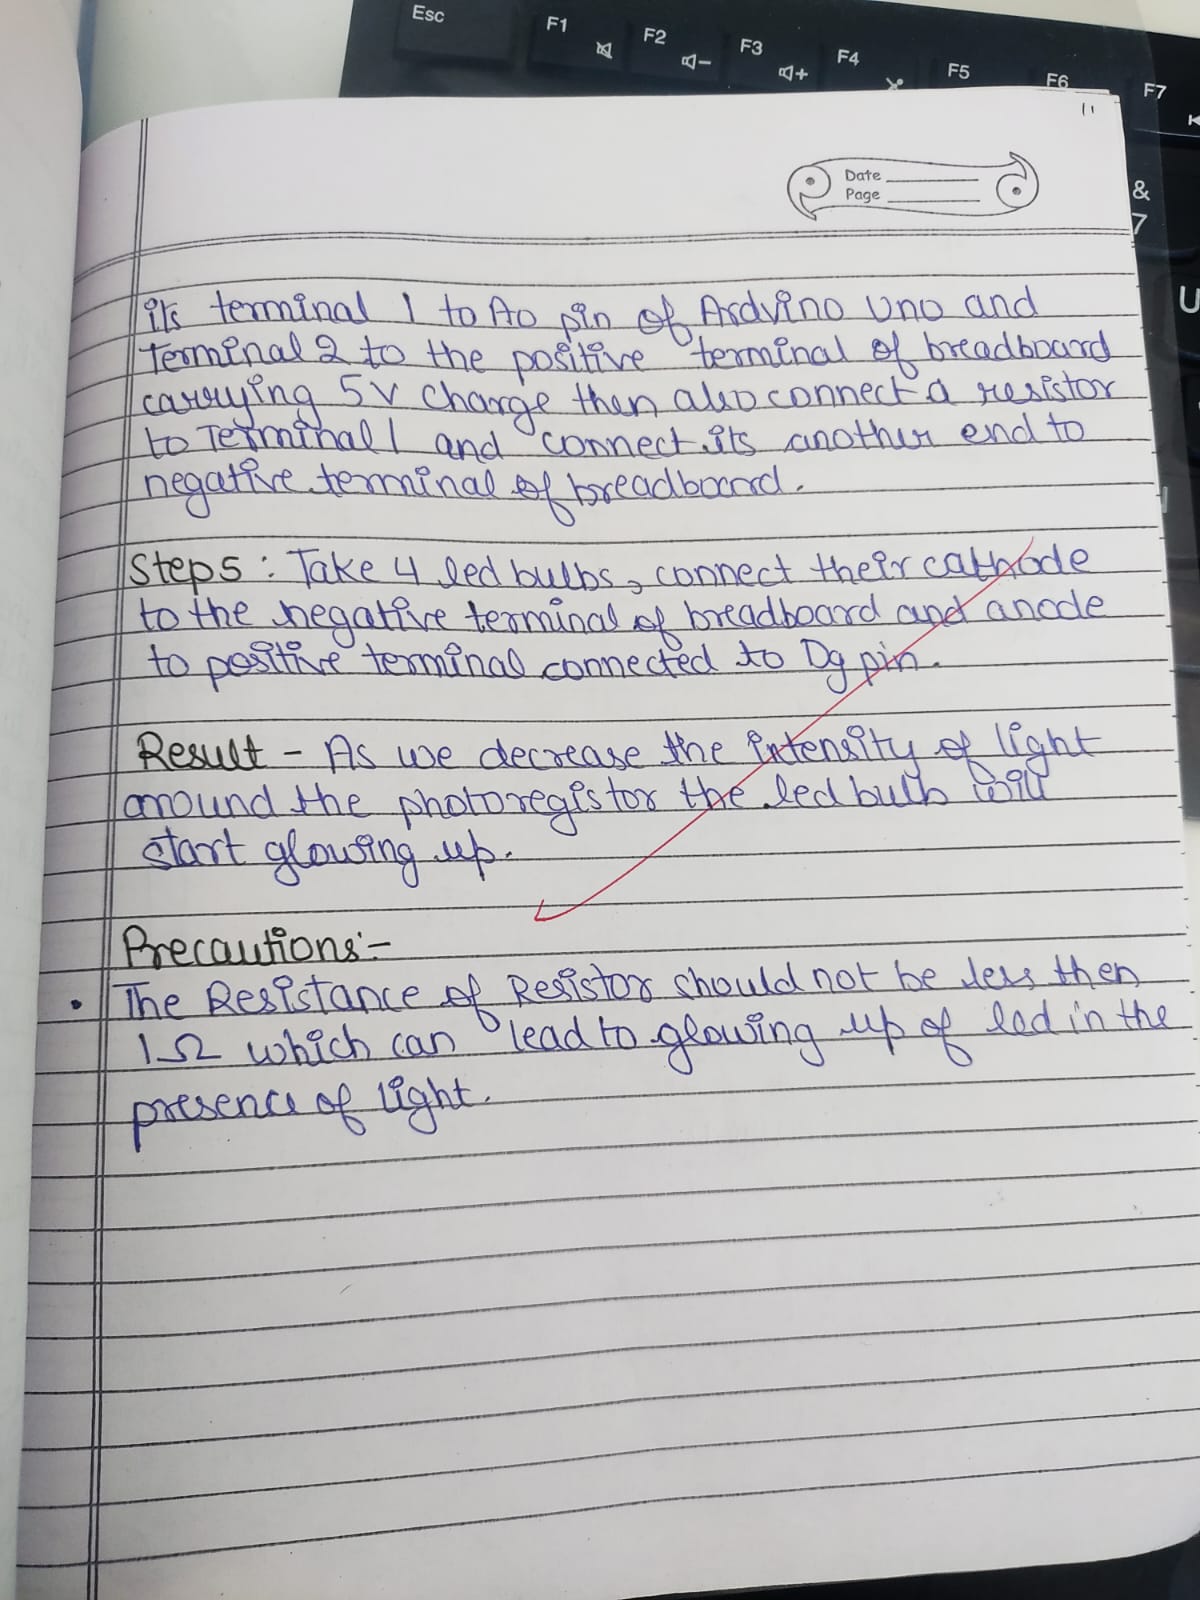 Esc
F1
F2
F3
F4
F5
F6
F7
&
7
U
11
Date
Page
its terminal 1 to A0 pin of Arduino Uno and
Terminal 2 to the positive terminal of breadboard
carrying 5V charge then also connect a resistor
to Terminal 1 and connect its another end to
negative terminal of breadboard.
Step 5 : Take 4 led bulbs, connect their cathode
to the negative terminal of breadboard and anode
to positive terminal connected to D9 pin.
Result - As we decrease the intensity of light
around the photoregistor the led bulb will
start glowing up.
Precautions:-
• The Resistance of Resistor should not be less then
1Ω which can lead to glowing up of led in the
presence of light.